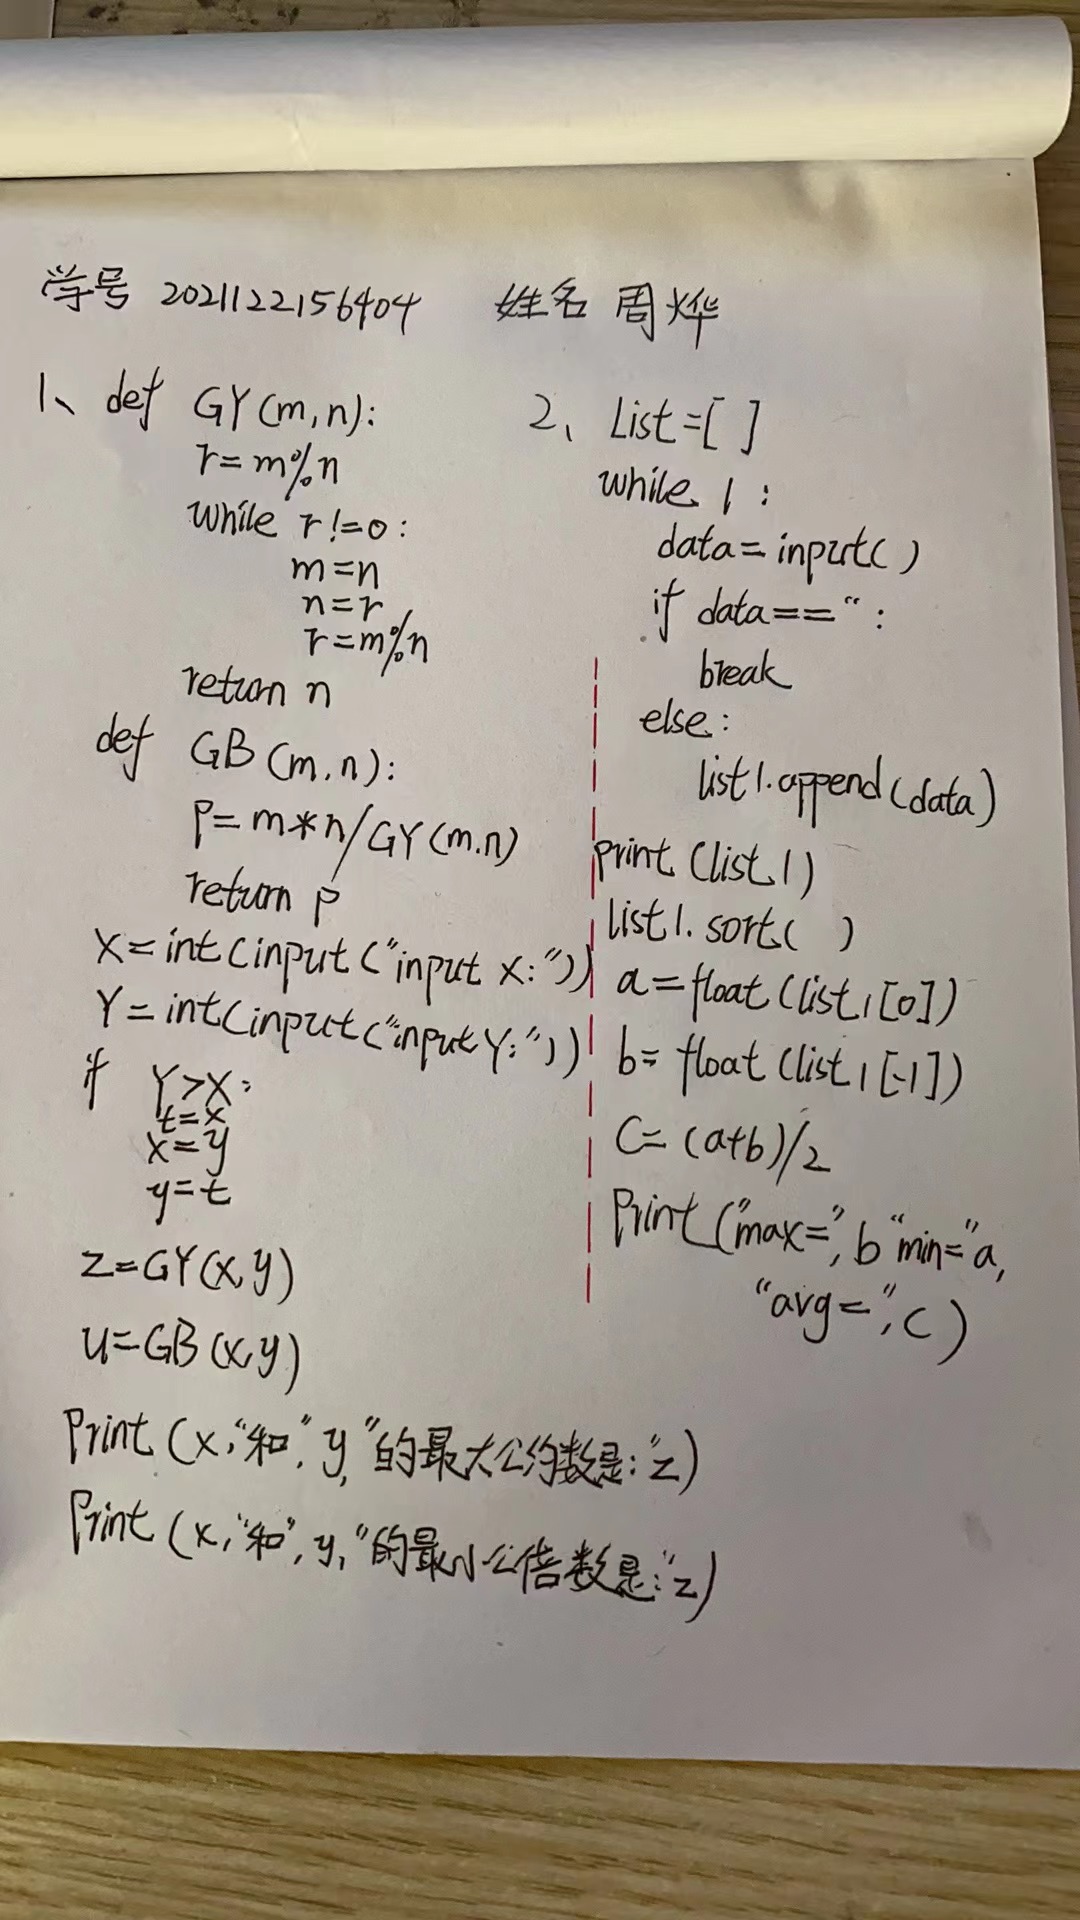 学号 2021122156404 姓名 周烨
1、def GY(m,n):
r=m%n
while r!=0:
m=n
n=r
r=m%n
return n
def GB(m,n):
p=m*n/GY(m.n)
return p
X=int(input("input X:"))
Y=int(input("input Y:"))
if Y>X:
t=x
x=y
y=t
z=GY(x,y)
u=GB(x,y)
Print(x,"和",y,"的最大公约数是:"z)
Print(x,"和",y,"的最小公倍数是:"z)
2、List=[ ]
while 1:
data=input()
if data==“:
break
else:
list1.append(data)
print(list1)
list1.sort( )
a=float(list1[0])
b=float(list1[-1])
C=(a+b)/2
Print("max=",b"min="a,
"avg=",C)